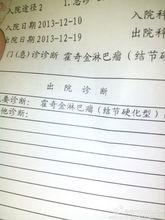 入院途径 2 1.急诊
入院日期 2013-12-10 入院科
出院日期 2013-12-19 出院科
门(急)诊诊断 霍奇金淋巴瘤(结节
出院诊断
要诊断: 霍奇金淋巴瘤(结节硬化型)
他诊断: